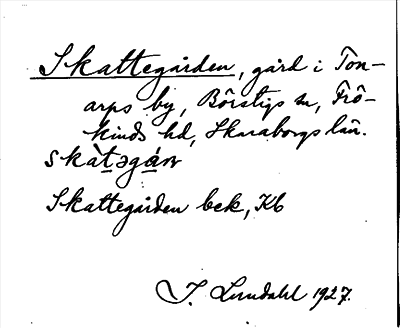 Skattegården, gård i Ton-
arps by, Börstigs sn, Frö-
kinds hd, Skaraborgs län.
skàt̲əgá̲ɳ
Skattegården bek, Kb
J. Lundahl 1927.